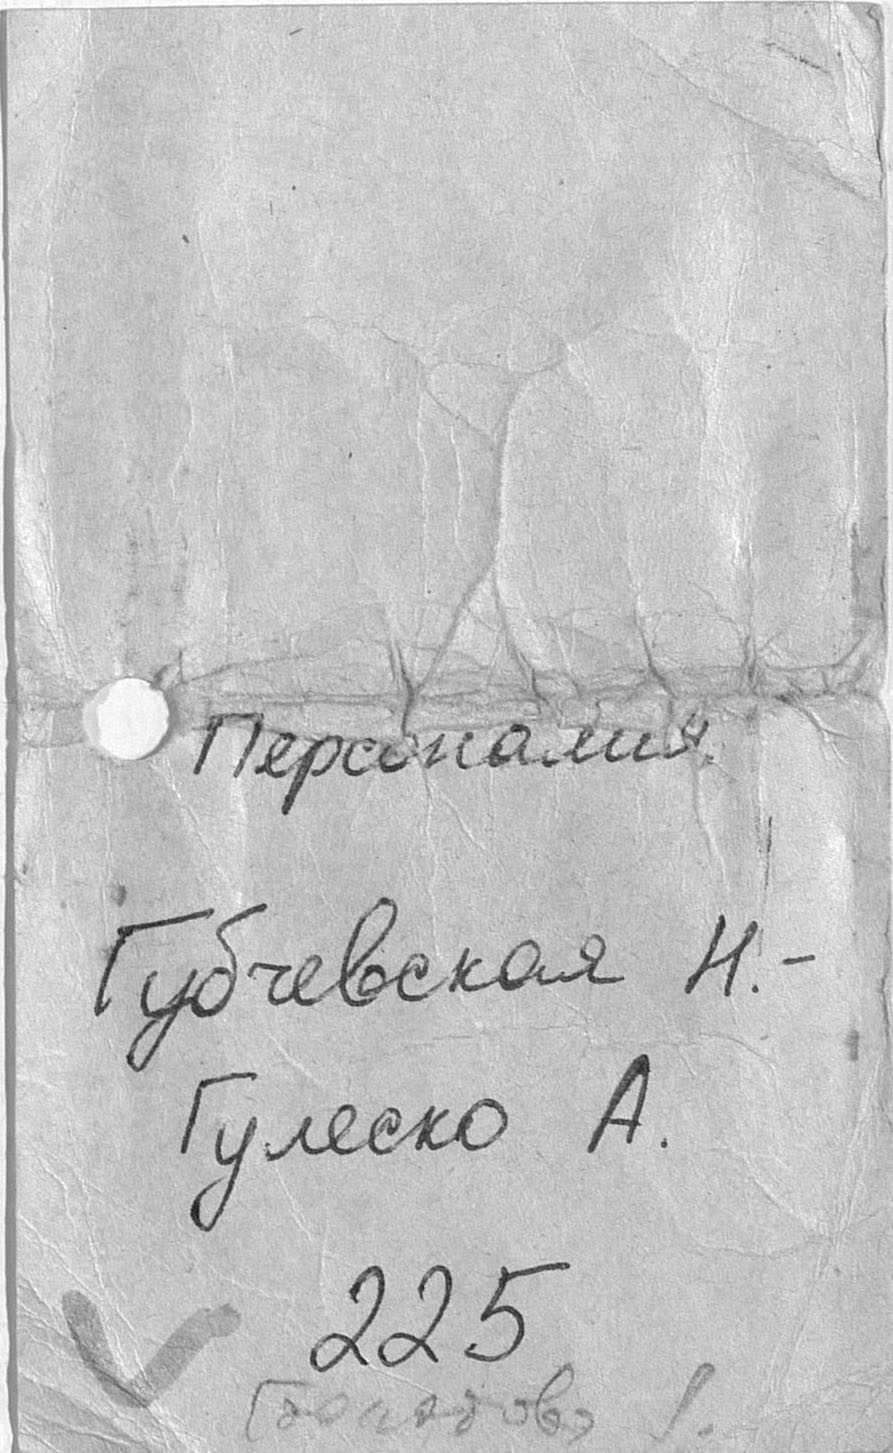 Персоналия
Губчевская Н.-
Гулеско А.
225